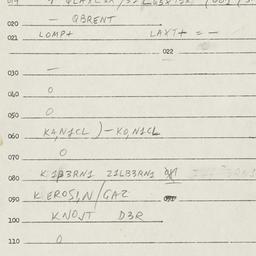 019
— QBRENT
020
021 LOMP+ LAXT+ = —
022
030 —
040 O
050 O
060 K4,N1CL)-K0,N1CL
070 O
080 K1B3RN1 Z1LB3RN1
090 KEROSIN/GAZ
100 KNOJT D3R
110 O